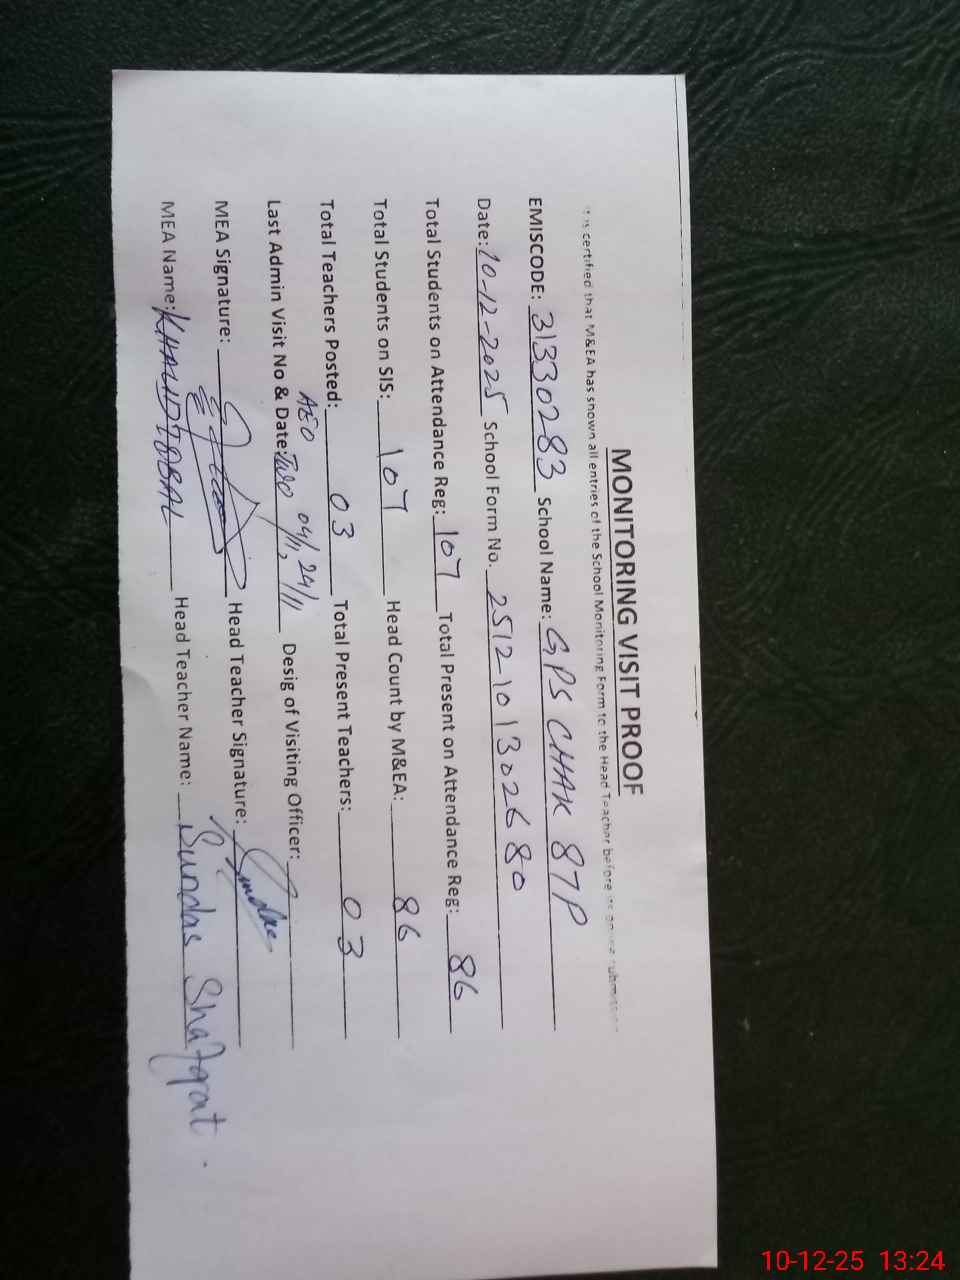 MONITORING VISIT PROOF
It is certified that M&EA has shown all entries of the School Monitoring Form to the Head Teacher before its submission
EMISCODE: 31330283 School Name: GPS CHAK 87P
Date: 10-12-2025 School Form No. 2512-101302680
Total Students on Attendance Reg: 107 Total Present on Attendance Reg: 86
Total Students on SIS: 107 Head Count by M&EA: 86
Total Teachers Posted: 03 Total Present Teachers: 03
AEO
Last Admin Visit No & Date: Two 04/11, 24/11 Desig of Visiting Officer:
MEA Signature: Head Teacher Signature: Sundas
MEA Name: KHALID IQBAL Head Teacher Name: Sundas Shafqat.
10-12-25 13:24